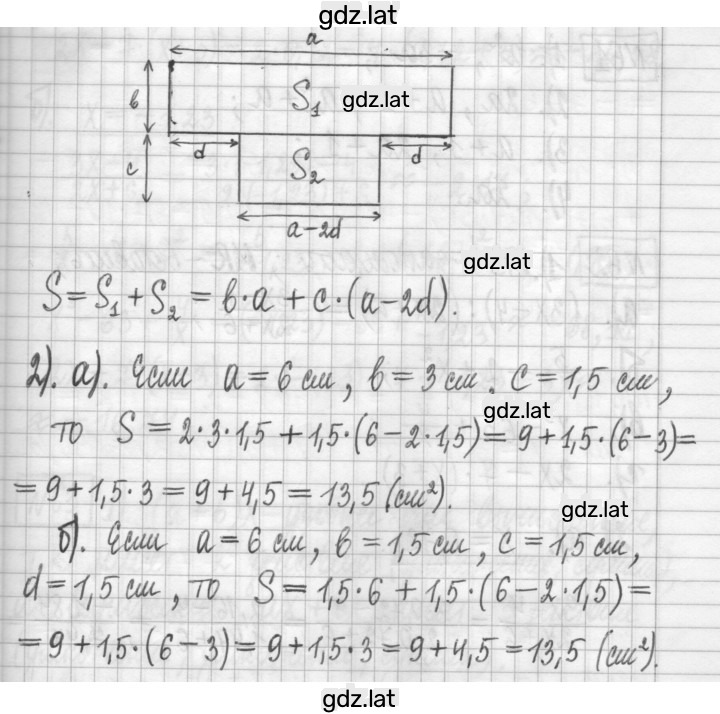 gdz.lat
a
в
S₁
gdz.lat
c
d
S₂
d
a-2d
gdz.lat
S = S₁ + S₂ = в·a + c·(a-2d).
2). а). Если a = 6 см, в = 3 см. c = 1,5 см,
gdz.lat
то S = 2·3·1,5 + 1,5·(6-2·1,5) = 9 + 1,5·(6-3) =
= 9 + 1,5·3 = 9 + 4,5 = 13,5 (см²).
gdz.lat
б). Если a = 6 см, в = 1,5 см, c = 1,5 см,
d = 1,5 см, то S = 1,5·6 + 1,5·(6-2·1,5) =
= 9 + 1,5·(6-3) = 9 + 1,5·3 = 9 + 4,5 = 13,5 (см²).
gdz.lat